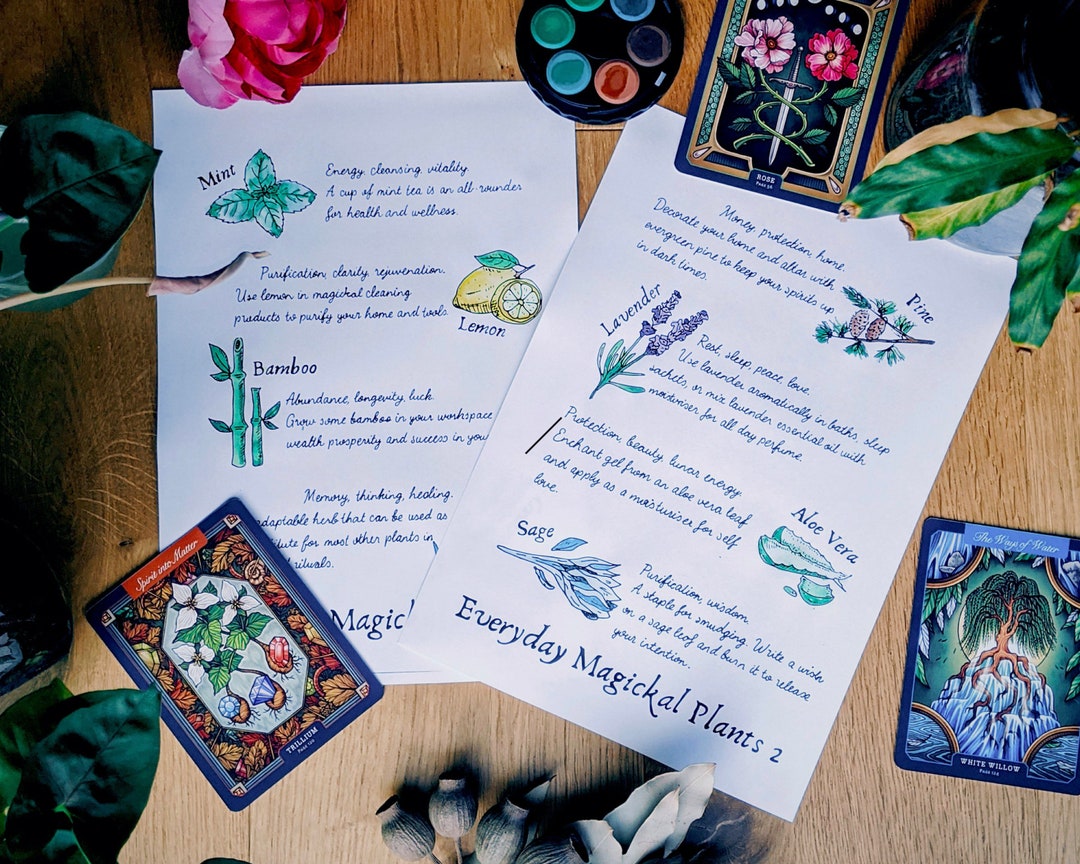 Mint
Energy, cleansing, vitality.
A cup of mint tea is an all-rounder
for health and wellness.
Purification, clarity, rejuvenation.
Use lemon in magickal cleaning
products to purify your home and tools.
Lemon
Bamboo
Abundance, longevity, luck.
Grow some bamboo in your workspace
wealth prosperity and success in you
Memory, thinking, healing.
adaptable herb that can be used as
for most other plants in
rituals.
Magic
Spirit into Matter
TRILLIUM
ROSE
Page 56
Money, protection, home.
Decorate your home and altar with
evergreen pine to keep your spirits up
in dark times.
Pine
Lavender
Rest, sleep, peace, love.
Use lavender aromatically in baths, sleep
sachets, or mix lavender essential oil with
moisturiser for all day perfume.
Protection, beauty, lunar energy.
Enchant gel from an aloe vera leaf
and apply as a moisturiser for self
love.
Aloe Vera
Sage
Purification, wisdom.
A staple for smudging. Write a wish
on a sage leaf and burn it to release
your intention.
Everyday Magickal Plants 2
The Ways of Water
WHITE WILLOW